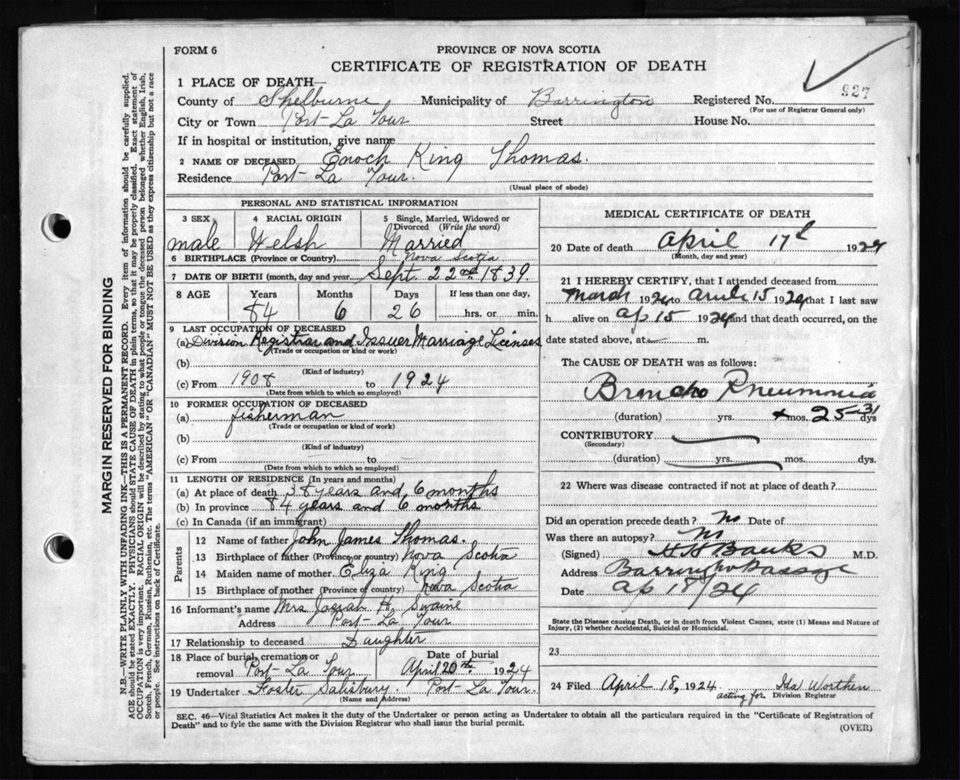 FORM 6
PROVINCE OF NOVA SCOTIA
CERTIFICATE OF REGISTRATION OF DEATH
927
1 PLACE OF DEATH—
County of Shelburne Municipality of Barrington Registered No.
(For use of Registrar General only)
City or Town Port La Tour Street House No.
If in hospital or institution, give name
2 NAME OF DECEASED Enoch King Thomas.
Residence Port La Tour.
(Usual place of abode)
PERSONAL AND STATISTICAL INFORMATION
3 SEX 4 RACIAL ORIGIN 5 Single, Married, Widowed or Divorced (Write the word)
male Welsh Married
6 BIRTHPLACE (Province or Country) Nova Scotia
7 DATE OF BIRTH (month, day and year) Sept 22nd 1839.
8 AGE Years Months Days If less than one day,
84 6 26 hrs. or min.
9 LAST OCCUPATION OF DECEASED
(a) Division Registrar and Issuer Marriage Licenses
(Trade or occupation or kind of work)
(b)
(Kind of industry)
(c) From 1908 to 1924
(Date from which to which so employed)
10 FORMER OCCUPATION OF DECEASED
(a) fisherman
(Trade or occupation or kind of work)
(b)
(Kind of industry)
(c) From to
(Date from which to which so employed)
11 LENGTH OF RESIDENCE (In years and months)
(a) At place of death 38 years and 6 months
(b) In province 84 years and 6 months
(c) In Canada (if an immigrant)
Parents
12 Name of father John James Thomas.
13 Birthplace of father (Province or country) Nova Scotia
14 Maiden name of mother Eliza King
15 Birthplace of mother (Province or country) Nova Scotia
16 Informant's name Mrs Josiah H. Swaine
Address Port La Tour
17 Relationship to deceased Daughter
18 Place of burial, cremation or removal Port La Tour Date of burial April 20th 1924
19 Undertaker Foster Salisbury. Port La Tour.
(Name and address)
MEDICAL CERTIFICATE OF DEATH
20 Date of death April 17th 1924
(Month, day and year)
21 I HEREBY CERTIFY, that I attended deceased from
March 1924 to April 15 1924 that I last saw
h alive on Ap 15 1924 and that death occurred, on the
date stated above, at m.
The CAUSE OF DEATH was as follows:
Broncho Pneumonia
(duration) yrs. mos. 25-31 dys
CONTRIBUTORY
(Secondary)
(duration) yrs. mos. dys.
22 Where was disease contracted if not at place of death?
Did an operation precede death? No Date of
Was there an autopsy? No
(Signed) H H Banks M.D.
Address Barrington Passage
Date Ap 18/24
State the Disease causing Death, or in death from Violent Causes, state (1) Means and Nature of
Injury, (2) whether Accidental, Suicidal or Homicidal.
23
24 Filed April 18, 1924. Ida Worthen
acting for Division Registrar
SEC. 46—Vital Statistics Act makes it the duty of the Undertaker or person acting as Undertaker to obtain all the particulars required in the "Certificate of Registration of
Death" and to fyle the same with the Division Registrar who shall issue the burial permit.
(OVER)
MARGIN RESERVED FOR BINDING
N.B.—WRITE PLAINLY WITH UNFADING INK—THIS IS A PERMANENT RECORD. Every item of information should be carefully supplied.
AGE should be stated EXACTLY. PHYSICIANS should STATE CAUSE OF DEATH in plain terms, so that it may be properly classified. Exact statement of
OCCUPATION is very important. RACIAL ORIGIN will be described by stating to what people or tongue the deceased person belonged whether English, Irish,
Scotch, French, German, Russian, Ruthenian, etc. The terms "AMERICAN" or "CANADIAN" MUST NOT BE USED as they express citizenship but not a race
or people. See instructions on back of Certificate.